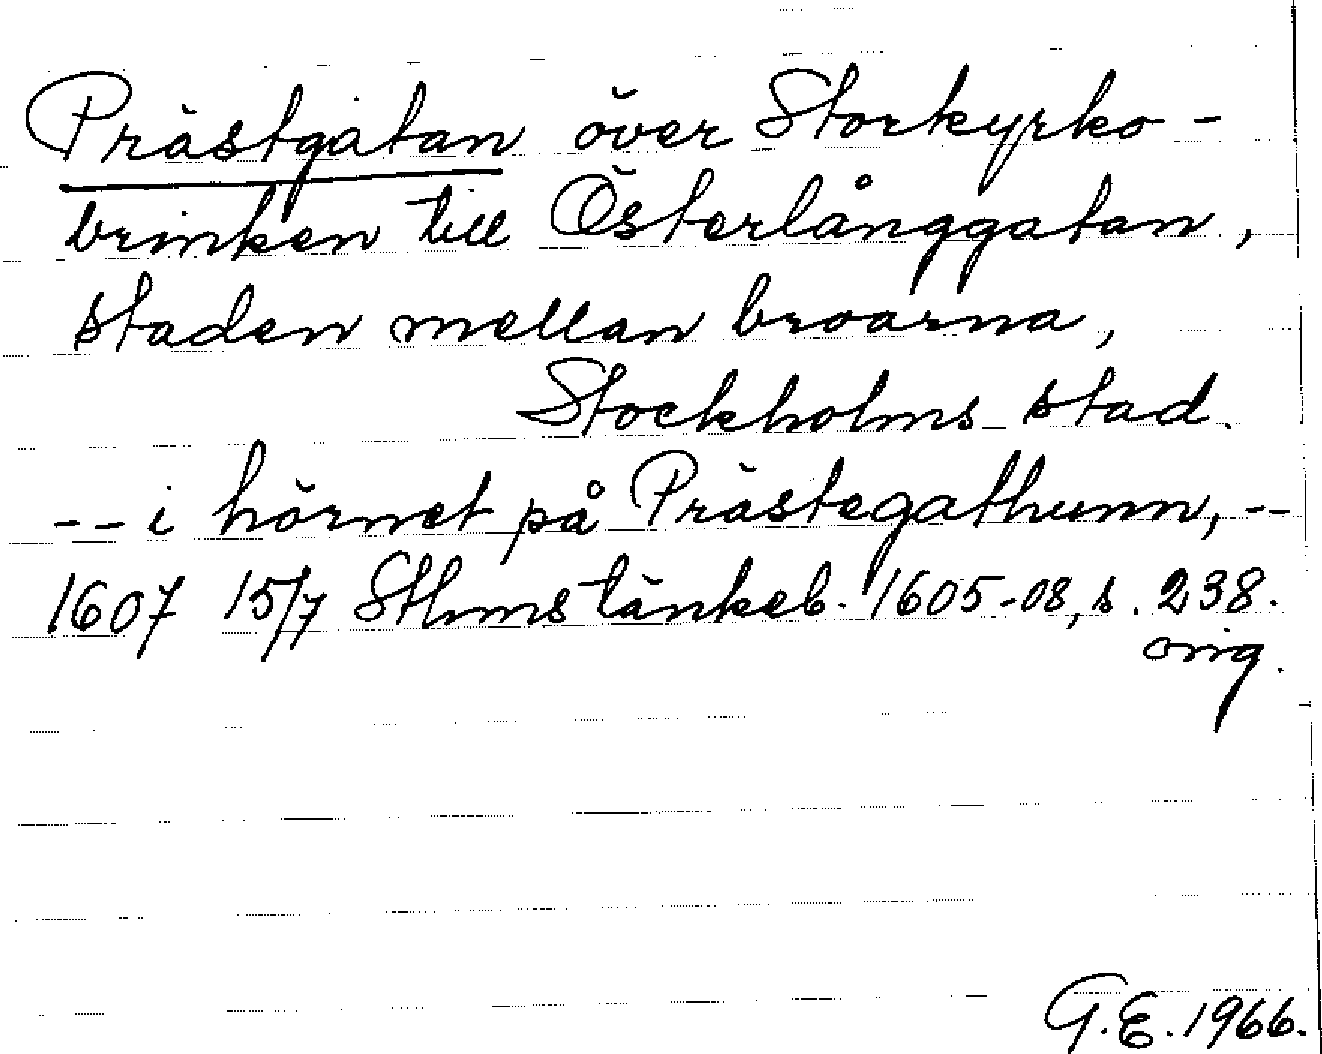 Prästgatan över Storkyrko-
brinken till Österlånggatan,
staden mellan broarna,
Stockholms stad.
-- i hörnet på Prästegathunn, --
1607 15/7 Sthms tänkeb. 1605-08, s. 238.
orig.
G.E. 1966.